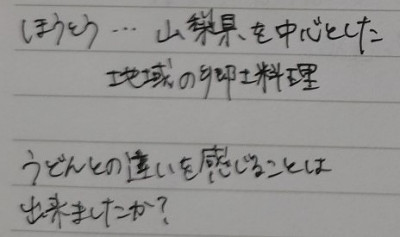 ほうとう… 山梨県を中心とした
地域の郷土料理
うどんとの違いを感じることは
出来ましたか?